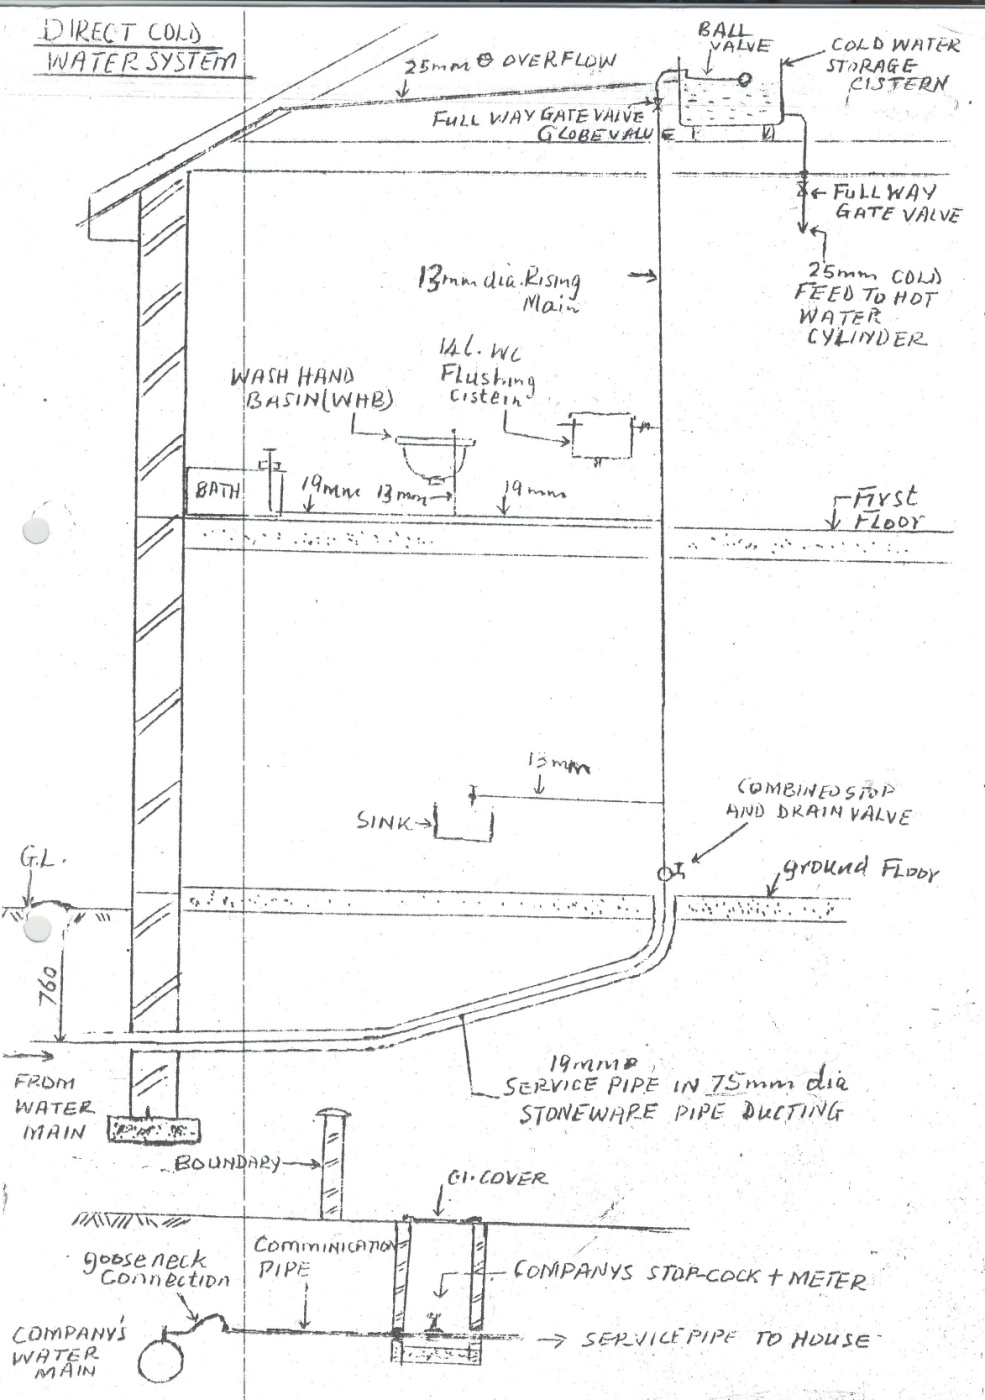 DIRECT COLD
WATER SYSTEM
25mm Ө OVERFLOW
BALL
VALVE
COLD WATER
STORAGE
CISTERN
FULL WAY GATE VALVE
GLOBE VALVE
FULL WAY
GATE VALVE
25mm COLD
FEED TO HOT
WATER
CYLINDER
13mm dia. Rising
Main
WASH HAND
BASIN (WHB)
14L. WC
Flushing
Cistein
BATH
19mm
13mm
19mm
First
FLoor
13mm
SINK
COMBINED STOP
AND DRAIN VALVE
G.L.
ground FLOOR
760
FROM
WATER
MAIN
19mm
SERVICE PIPE IN 75mm dia
STONEWARE PIPE DUCTING
BOUNDARY
C.I. COVER
gooseneck
Connection
COMMINICATION
PIPE
COMPANYS STOP-COCK + METER
COMPANY'S
WATER
MAIN
SERVICE PIPE TO HOUSE